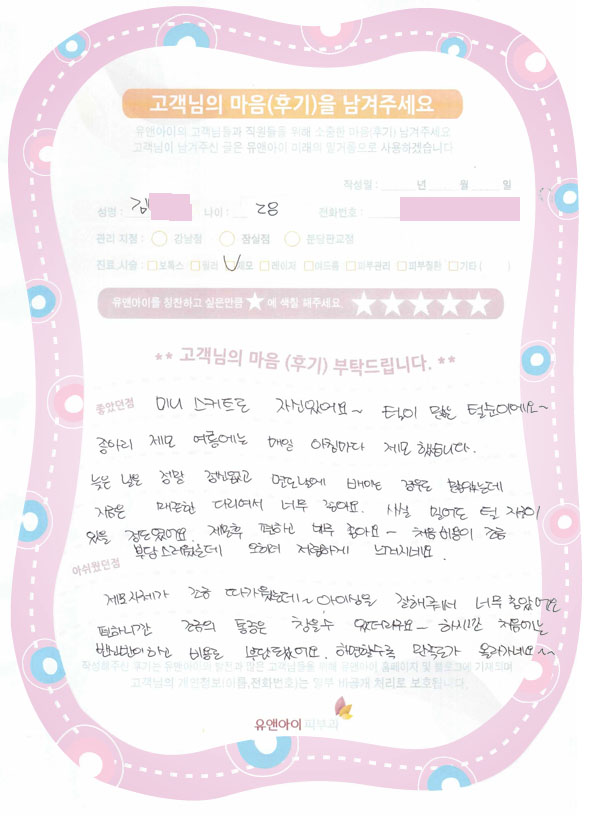 고객님의 마음(후기)을 남겨주세요
유앤아이의 고객님들과 직원들을 위해 소중한 마음(후기) 남겨주세요
고객님이 남겨주신 글은 유앤아이 미래의 밑거름으로 사용하겠습니다
작성일 : 년 월 일
성명 : 김 나이 : 28 전화번호 :
관리 지점 : 강남점 잠실점 분당판교점
진료,시술 : 보톡스 필러 제모 레이저 여드름 피부관리 피부질환 기타 ( )
유앤아이를 칭찬하고 싶은만큼 ★ 에 색칠 해주세요. ★★★★★
** 고객님의 마음 (후기) 부탁드립니다. **
좋았던점 미니 스커트도 자신있어요~ 털이 많은 털순이에요~
종아리 제모 여름에는 매일 아침마다 제모 했습니다.
늦은 날은 정말 정신없고 면도날에 베이는 경우도 많았는데
지금은 매끈한 다리여서 너무 좋아요. 사실 밀어도 털 자국이
있을 정도였어요. 제모후 편하고 너무 좋아요~ 처음 비용이 조금
부담스러웠는데 오히려 저렴하게 느껴지네요.
아쉬웠던점
제모자체가 조금 따가웠는데~ 잘해주셔서 너무 좋았어요
조금의 통증은 참을수 있더라구요~ 하지만 처음에는
비용도 부담됐어요. 하면할수록 만족도가 올라가네요~~
작성해주신 후기는 유앤아이의 칭찬과 많은 고객님들을 위해 유앤아이 홈페이지 및 블로그에 기재되며
고객님의 개인정보(이름,전화번호)는 일부 비공개 처리로 보호됩니다.
유앤아이 피부과